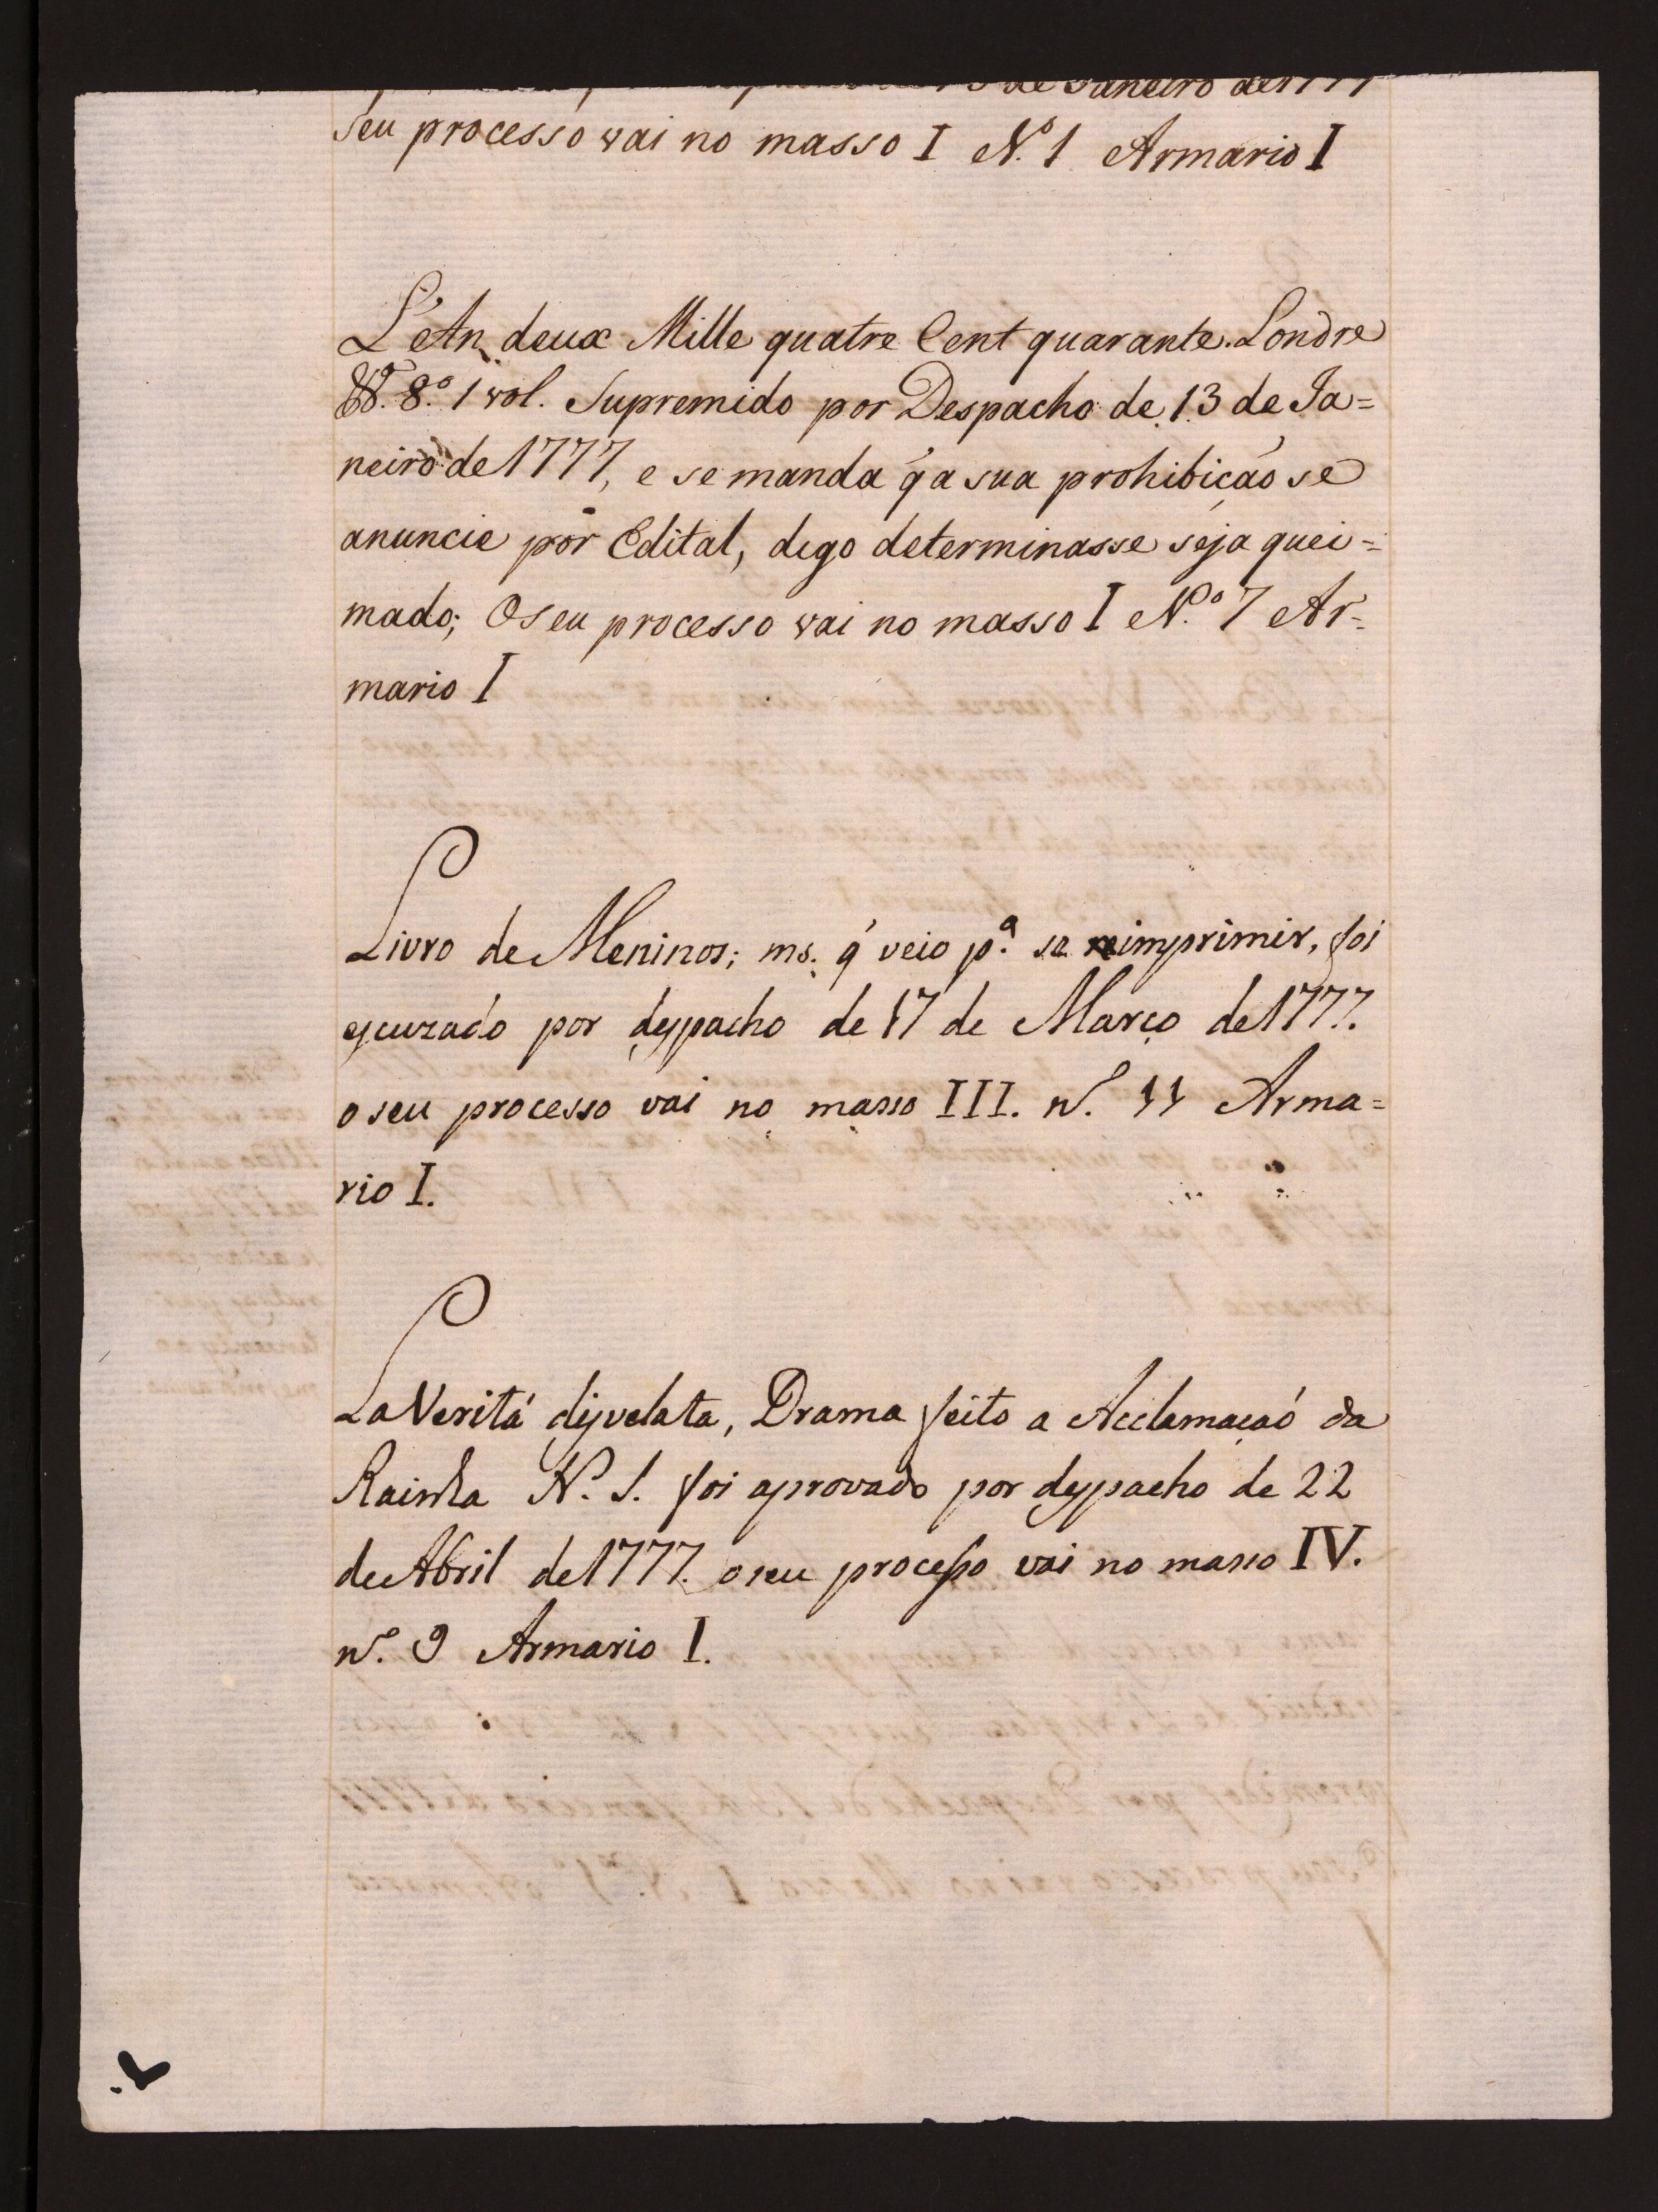 de Janeiro de 1777
seu processo vai no masso I N.º 1 Armario I
L'An deux Mille quatre Cent quarante. Londre
8.º 1 vol. Supremido por Despacho de 13 de Ja=
neiro de 1777, e se manda q̃ a sua prohibição se
anuncie por Edital, digo determinasse seja quei=
mado; O seu processo vai no masso I N.º 7 Ar=
mario I
Livro de Meninos; ms. q̃ veio p.ª se reimprimir, foi
escuzado por despacho de 17 de Março de 1777.
o seu processo vai no masso III. n.º 11 Arma=
rio I.
La Veritá disvelata, Drama feito a Acclamaçaó da
Rainha N. S. foi aprovado por despacho de 22
de Abril de 1777. o seu processo vai no masso IV.
n.º 9 Armario I.